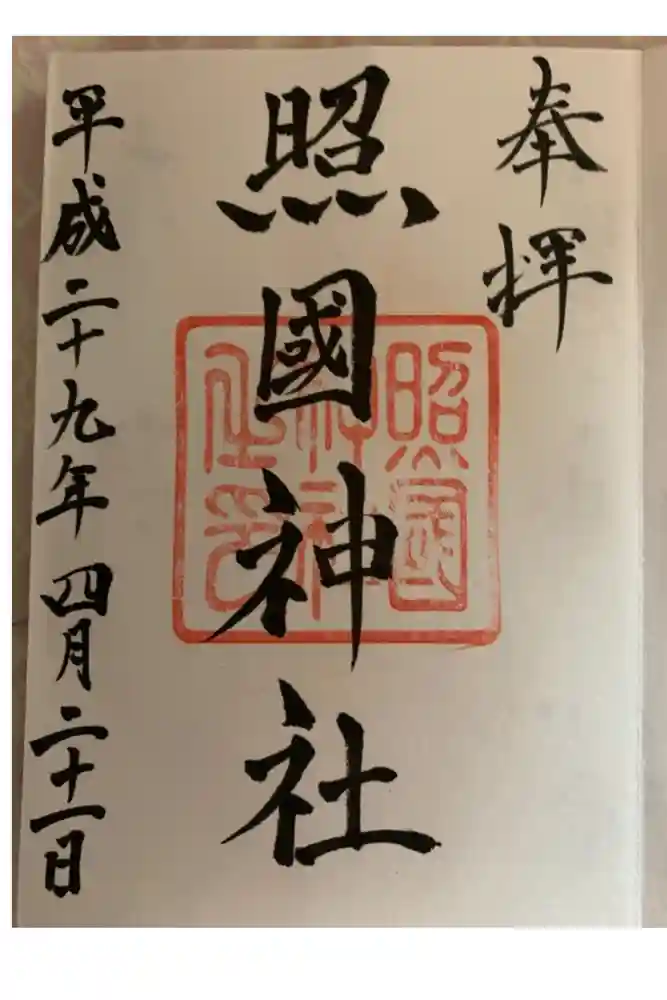 奉拝
照國神社
平成二十九年四月二十一日
照國
神社